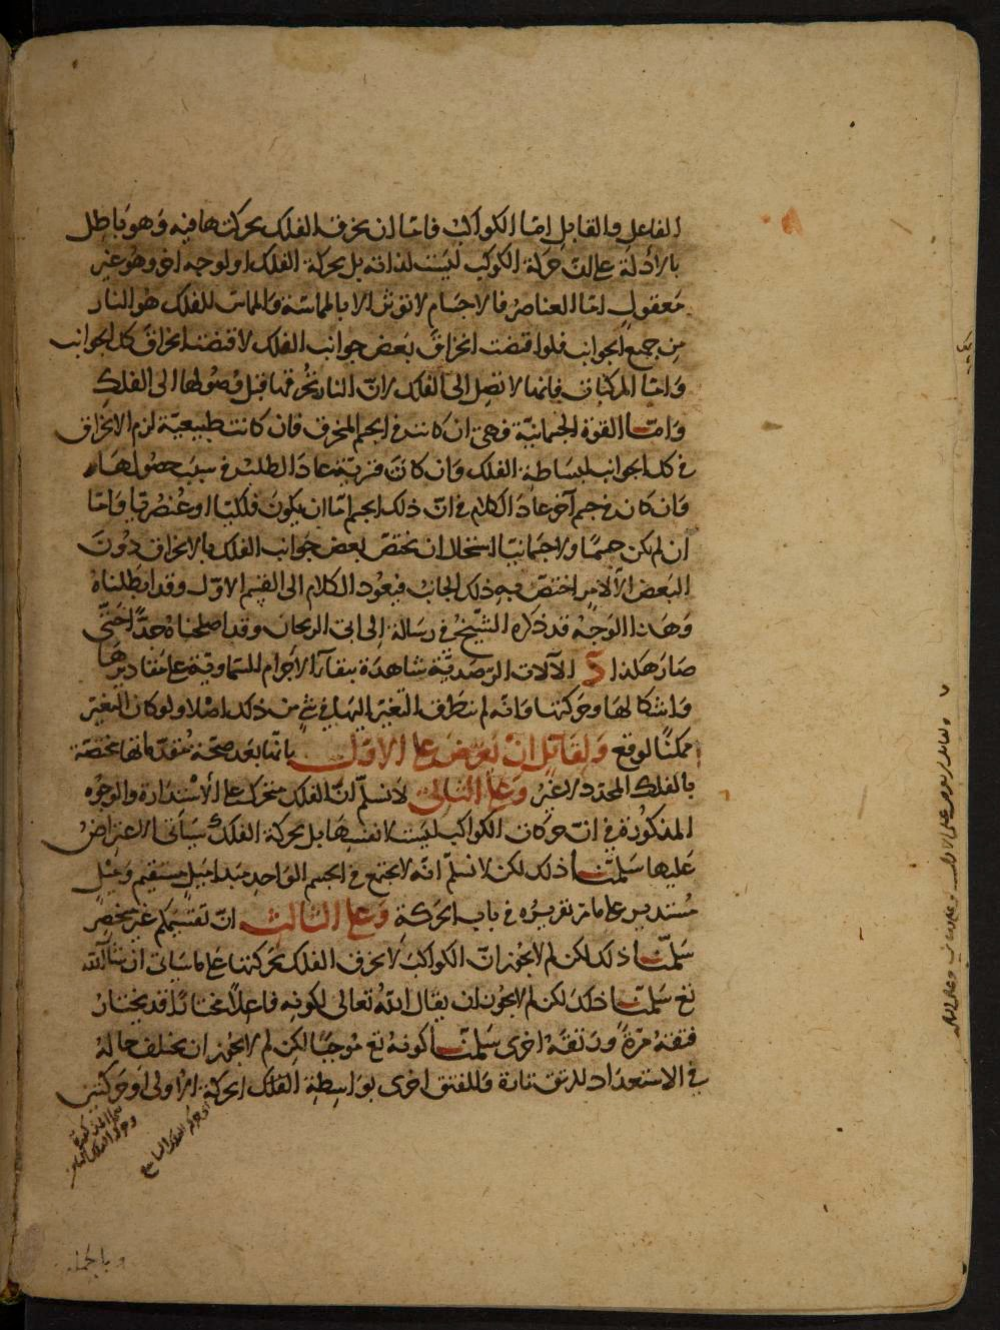 الفاعل والقابل امّا الكواكب فامّا ان يخرق الفلك بحركتها فيه وهو باطل
بالادلة على ان حركة الكوكب ليست لذاته بل بحركة الفلك او لوجه اخر وهو غير
معقول امّا العناصر فالاجسام لا تؤثر الا بالمماسّة والمماسّ للفلك هو النار
من جميع الجوانب فلو اقتضت انخراق بعض جوانب الفلك لاقتضت انخراق كل الجوانب
وامّا المركبات فانها لا تصل الى الفلك لانّ النار تحرقها قبل وصولها الى الفلك
وامّا القوة الجسمانيّة فهي ان كانت في الجسم المنخرق فان كانت طبيعيّة لزم الانخراق
في كل الجوانب لبساطة الفلك وان كانت قسريّة عاد الطلب في سبب حصولها
وان كانت في جسم آخر عاد الكلام في انّ ذلك الجسم امّا ان يكون فلكيّا او عنصريّا وامّا
ان لم يكن جسمًا ولا جسمانيّا استحال ان يختصّ بعض جوانب الفلك بالانخراق دون
البعض الّا لامر اختصّ به ذلك الجانب فيعود الكلام الى القسم الاوّل وقد ابطلناه
وهذا الوجه قد ذكره الشيخ في رسالة الى ابي الريحان وقد اصلحناه جدًّا حتّى
صار هكذا الآلات الرصديّة شاهدة ببقآء الاجرام السماويّة على مقاديرها
واشكالها وحركتها وانّه لم يتطرّق التغيّر اليها في شيء من ذلك اصلا ولو كان التغيّر
ممكنًا لوقع ولقائل ان يعترض على الاول بانّها بعد صحّة مقدّماتها مختصّة
بالفلك المحدد لا غير وعلى الثاني لا نسلّم انّ الفلك متحرك على الاستدارة والوجوه
المذكورة في انّ حركات الكواكب ليست لانفسها بل بحركة الفلك سيأتي الاعتراض
عليها سلّمنا ذلك لكن لا نسلّم انّه لا يجتمع في الجسم الواحد مبدا ميل مستقيم وميل
مستدير على ما مرّ تقريره في باب الحركة وعلى الثالث انّ تقسيمكم غير منحصر
سلّمنا ذلك لكن لم لا يجوز انّ الكواكب لا تخرق الفلك بحركتها على ما سيأتي ان شاء الله
تع سلّمنا ذلك لكن لم لا يجوز ان يقال الله تعالى لكونه فاعلًا مختارًا قد يختار
فتقه مرّةً ورتقه اخرى سلّمنا كونه تع موجبًا لكن لم لا يجوز ان يختلف حاله
في الاستعداد للرتق تارة وللفتق اخرى بواسطة الفلك الحركة اولى او حركتين
وبالجملة